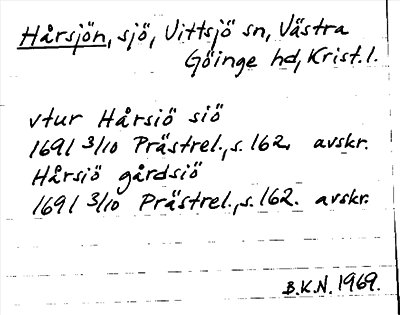 Hårsjön, sjö, Vittsjö sn, Västra
Göinge hd, Krist. l.
vtur Hårsiö siö
1691 3/10 Prästrel., s. 162. avskr.
Hårsiö gårdsiö
1691 3/10 Prästrel., s. 162. avskr.
B.K.N. 1969.